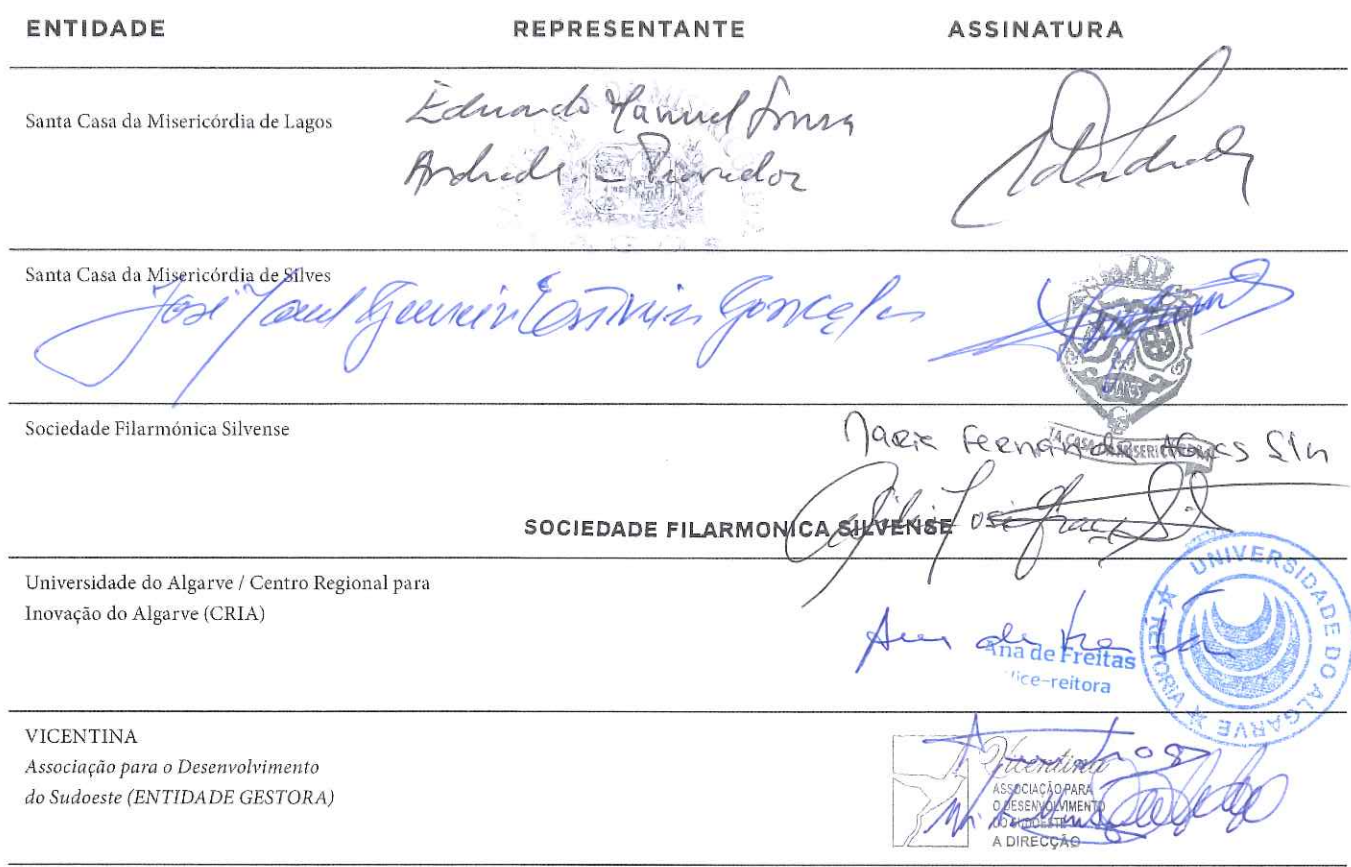 ENTIDADE REPRESENTANTE ASSINATURA
Santa Casa da Misericórdia de Lagos
Eduardo Manuel Sousa
Andrade - Provedor
Santa Casa da Misericórdia de Silves
José Gonçalves
Sociedade Filarmónica Silvense
Maria Fernanda
José
SOCIEDADE FILARMONICA SILVENSE
Universidade do Algarve / Centro Regional para
Inovação do Algarve (CRIA)
Ana de Freitas
Vice-reitora
UNIVERSIDADE DO ALGARVE ★ REITORIA ★
VICENTINA
Associação para o Desenvolvimento
do Sudoeste (ENTIDADE GESTORA)
Vicentina
ASSOCIAÇÃO PARA
O DESENVOLVIMENTO
DO SUDOESTE
A DIRECÇÃO